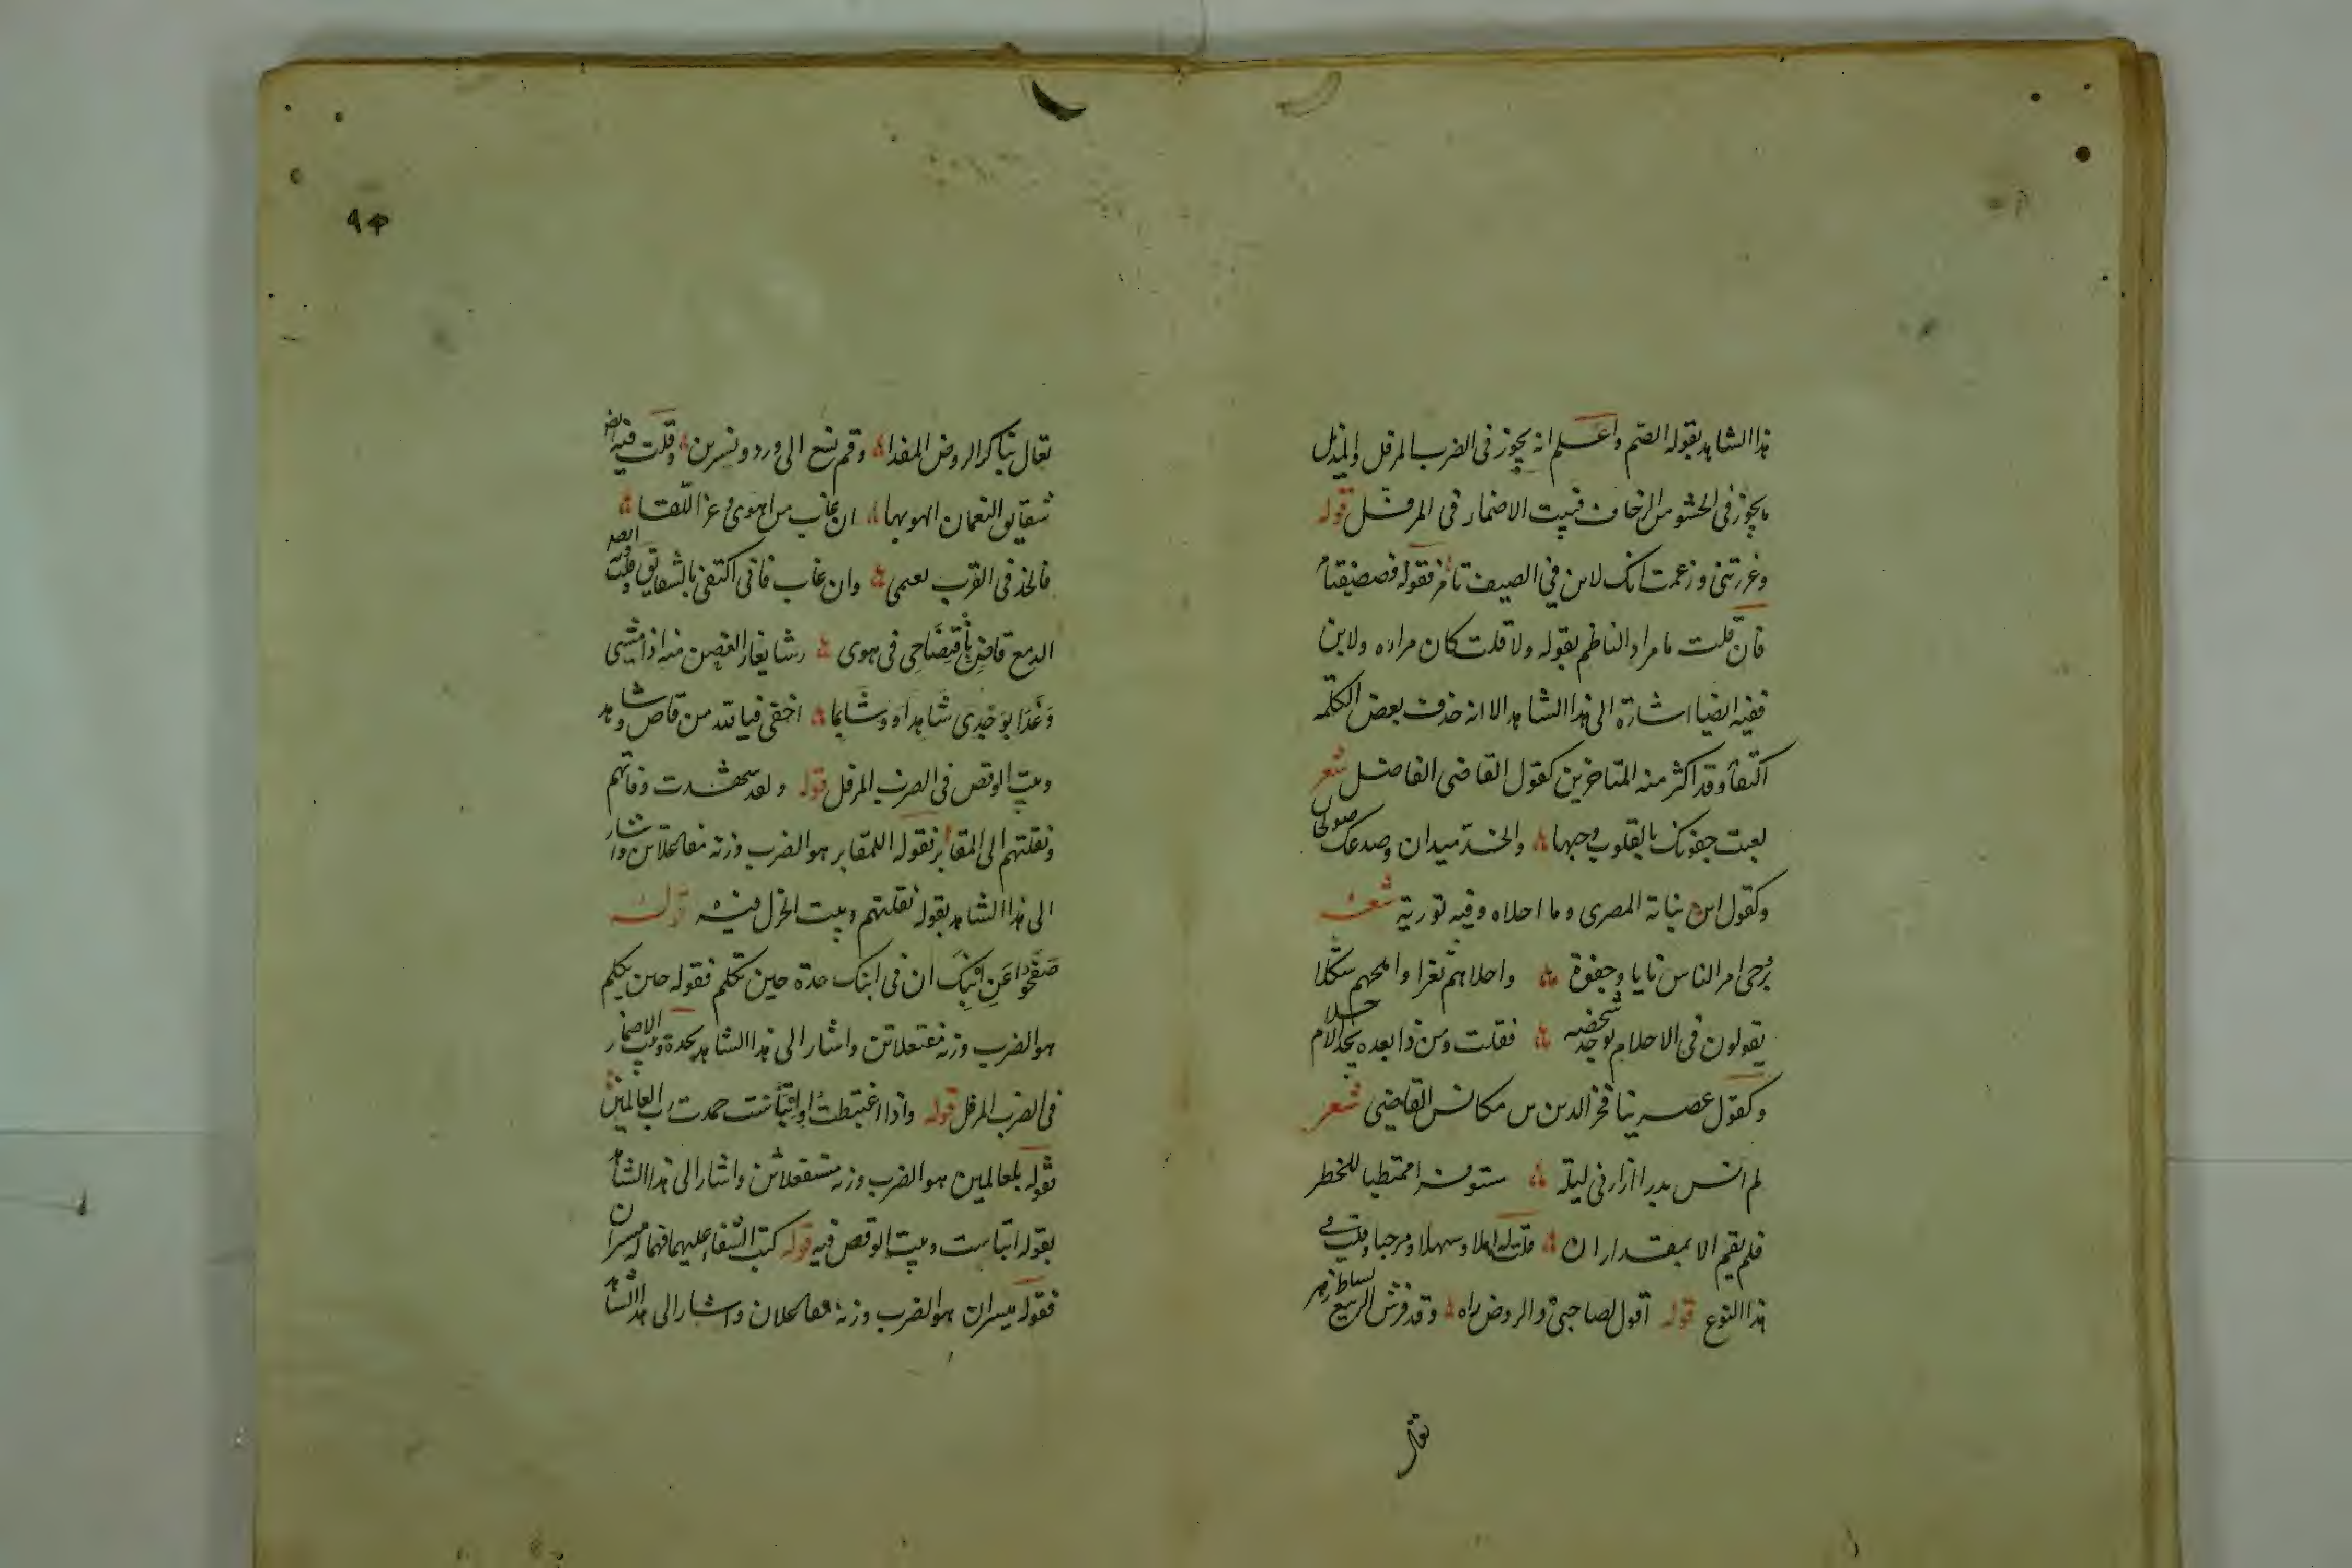 هذا الشاهد بقوله الصم واعلم انه يجوز فى الضرب المرفل والمذيل
ما يجوز فى الحشو من الزحاف فبيت الاضمار فى المرفل قوله
وغررتنى وزعمت انك لابن في الصيف تامر فقوله
فان قلت ما مراد الناظم بقوله ولا قلت كان مراده ولابن
ففيه ايضا اشارة الى هذا الشاهد الا انه حذف بعض الكلمة
اكتفاء وقد اكثر منه المتاخرين كقول القاضى الفاضل شعر
لعبت جفونك بالقلوب وحبها والخد ميدان وصدغك صولجان
وكقول ابن نباتة المصرى وما احلاه وفيه تورية شعر
بروحى امر الناس نايا وجفوة واحلاهم ثغرا واملحهم شكلا
يقولون فى الاحلام يوجد شخصه فقلت ومن ذا بعده يجد الاحلام
وكقول عصرينا فخر الدين بن مكانس القاضى شعر
لم انس بدرا زارنى ليلة مستوفزا ممتطيا للخطر
فلم يقم الا بمقدار ان قلت له اهلا وسهلا ومرحبا وقلت فى
هذا النوع قوله اقول لصاحبى والروض زاه وقد فرش الربيع بساط زهر
تعال
٩٣
تعال نباكر الروض المفدا وقم نسع الى ورد ونسرين وقلت فيه ايضا
شقايق النعمان الهو بها ان غاب من اهوى وعز اللقا
فالخد فى القرب نعيمى وان غاب فانى اكتفى بالشقايق وقلت ايضا
الدمع قاض بافتضاحى فى هوى رشا يغار الغصن منه اذا مشى
وغدا بوجدى شاهدا ووشا بما اخفى فيا لله من قاض وشاهد
وبيت الوقص فى الضرب المرفل قوله ولقد شهدت وفاتهم
ونقلتهم الى المقابر فقوله اللمقابر هو الضرب وزنه مفاعلاتن واشار
الى هذا الشاهد بقوله نقلتهم وبيت الخزل فيه قوله
صفحوا عن ابنك ان فى ابنك حدة حين تكلم فقوله حين يكلم
هو الضرب وزنه مفتعلاتن واشار الى هذا الشاهد بحدة وبيت الاضمار
فى الضرب المرفل قوله واذا اغتبطت او ابتأست حمدت رب العالمين
بقوله بلعالمين هو الضرب وزنه مستفعلاتن واشار الى هذا الشاهد
بقوله ابتأست وبيت الوقص فيه قوله كتب الشقاء عليهما فهما له ميسران
فقوله ميسران هو الضرب وزنه مفاعلان واشار الى هذا الشاهد